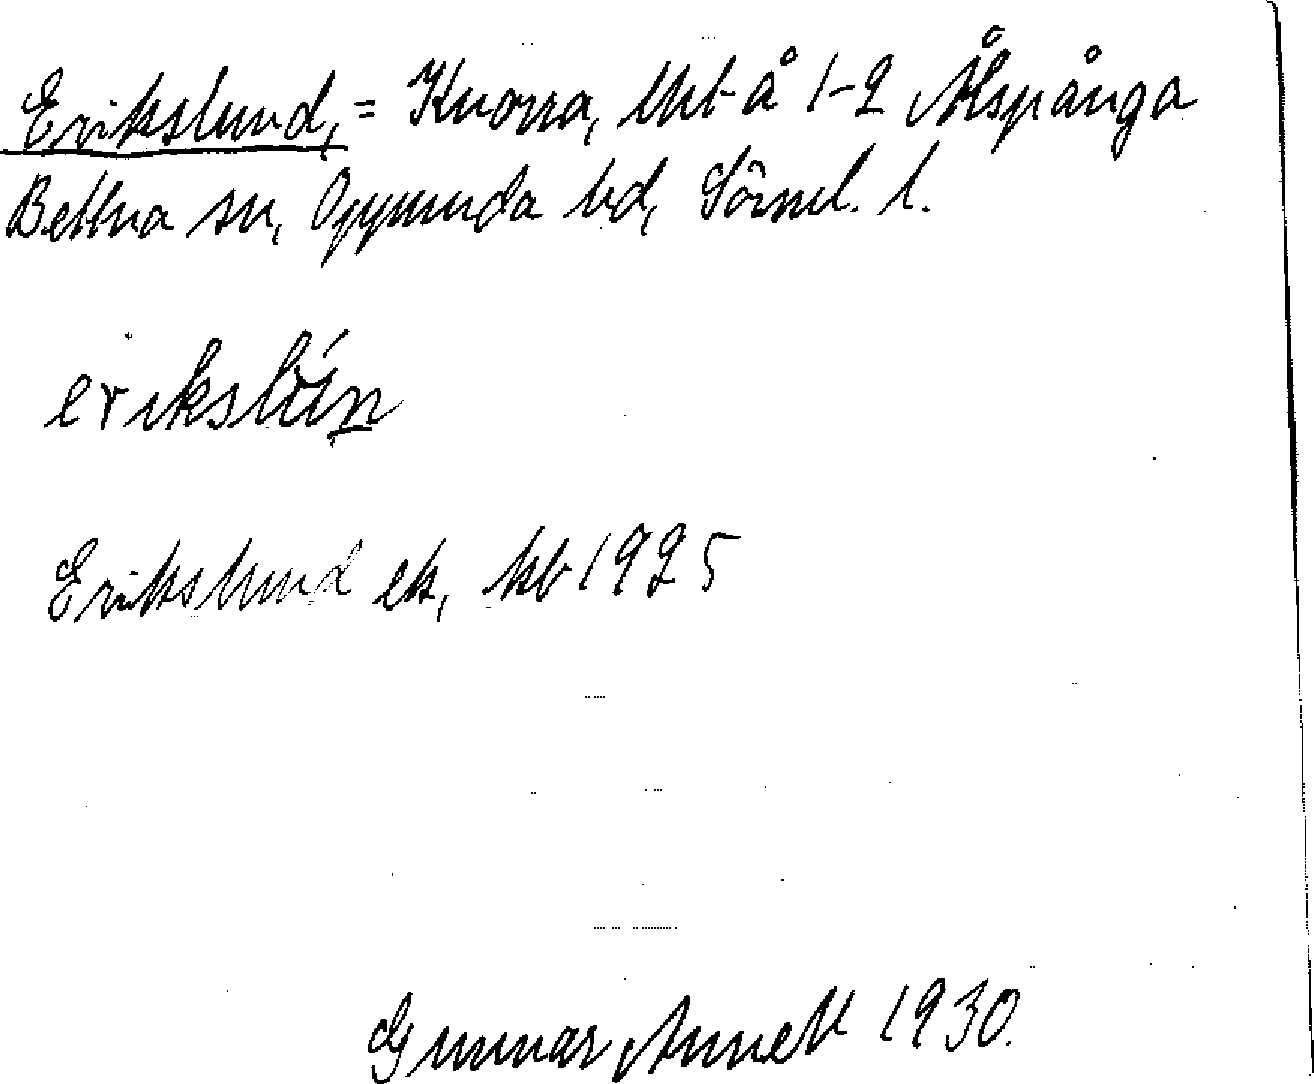 Erikslund, = Knorra, lht å 1-2 Ålspånga
Bettna sn, Oppunda hd, Sörml. l.
erikslún
Erikslund ek, kb 1925
Gunnar Annell 1930.